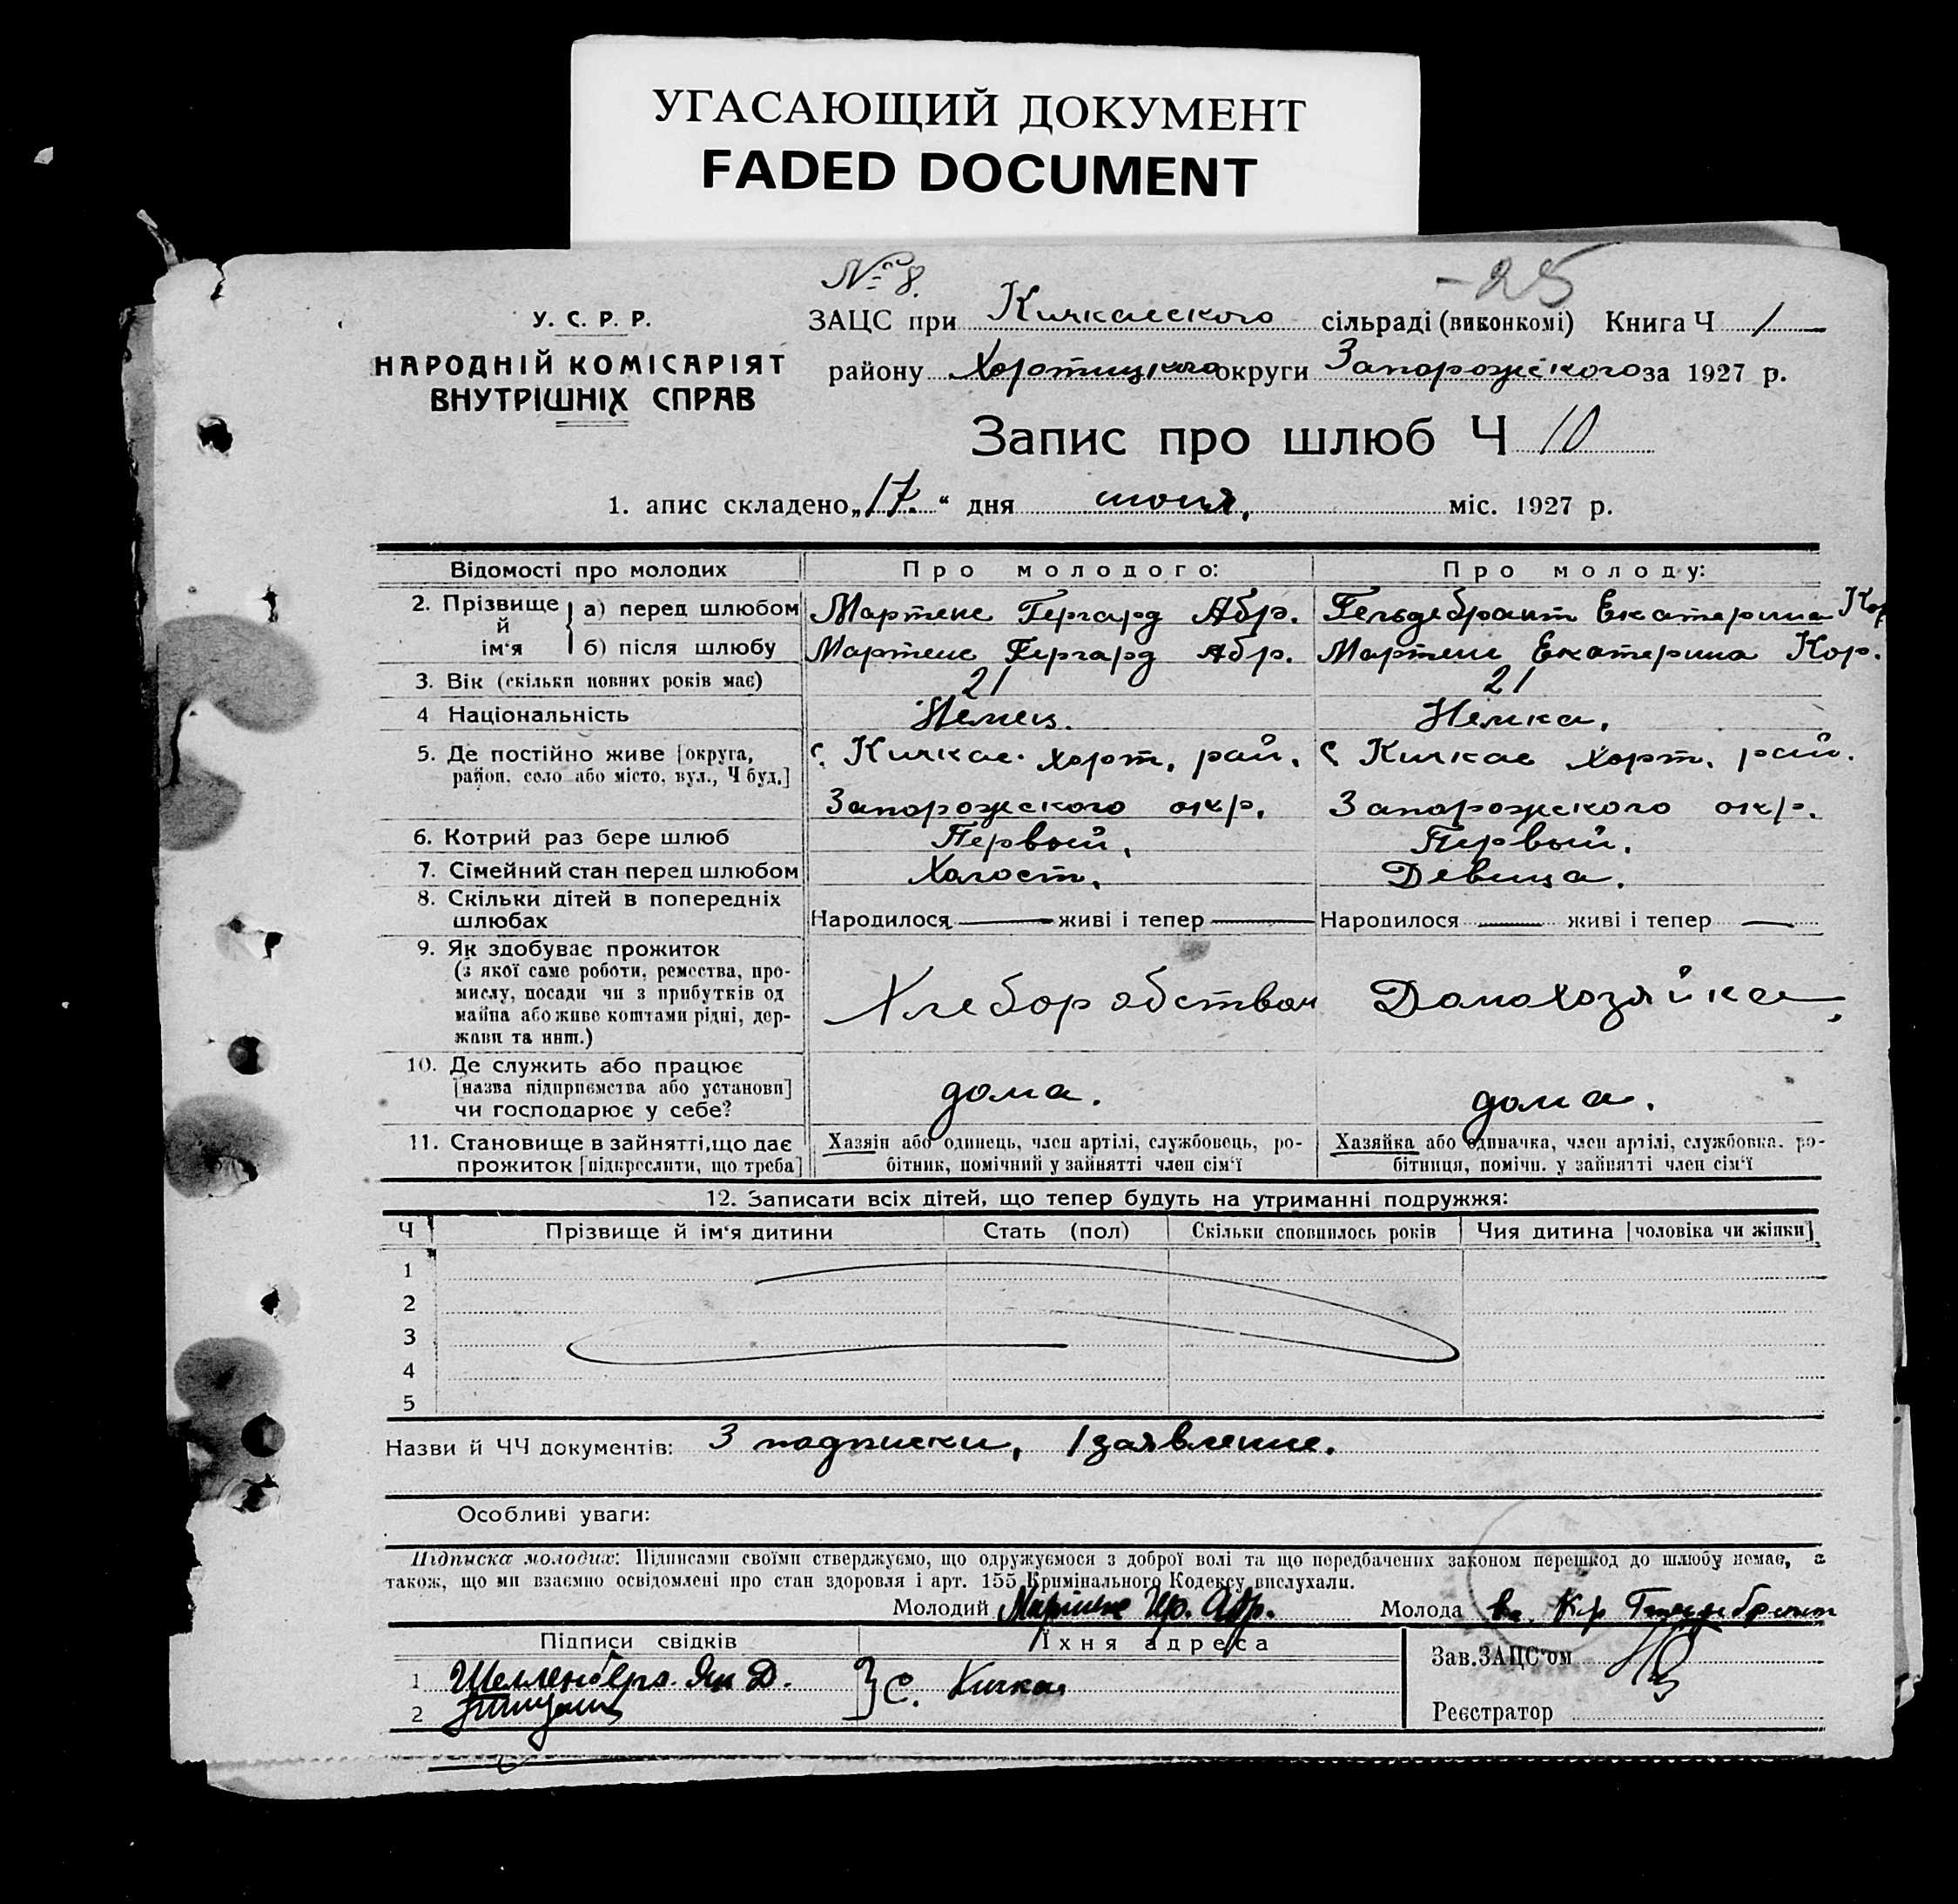 УГАСАЮЩИЙ ДОКУМЕНТ
FADED DOCUMENT
№ 8.
- 25
У. С. Р. Р.
НАРОДНІЙ КОМІСАРІЯТ
ВНУТРІШНІХ СПРАВ
ЗАЦС при Кичкасского сільраді (виконкомі) Книга Ч 1
району Хортицкого округи Запорожского за 1927 р.
Запис про шлюб Ч 10
1. апис складено „17.“ дня июня, міс. 1927 р.
Відомості про молодих Про молодого: Про молоду:
2. Прізвище й ім‘я а) перед шлюбом Мартенс Гергард Абр. Гельдебрант Екатерина Кор
б) після шлюбу Мартенс Гергард Абр. Мартенс Екатерина Кор.
3. Вік (скільки повних років має) 21 21
4 Національність Немец. Немка.
5. Де постійно живе [округа, район, село або місто, вул., Ч буд.] с. Кичкас. Хорт. рай. с Кичкас Хорт. рай.
Запорожского окр. Запорожского окр.
6. Котрий раз бере шлюб Первый. Первый.
7. Сімейний стан перед шлюбом Холост. Девица.
8. Скільки дітей в попередніх шлюбах Народилося живі і тепер Народилося живі і тепер
9. Як здобуває прожиток
(з якої саме роботи, ремества, про-
мислу, посади чи з прибутків од
майна або живе коштами рідні, дер-
жави та инш.) Хлеборобством Домохозяйка
10. Де служить або працює
[назва підприємства або установи]
чи господарює у себе? дома. дома.
11. Становище в зайнятті, що дає Хазяін або одинець, член артілі, службовець, ро- Хазяйка або одиначка, член артілі, службовка. ро-
прожиток [підкреслити, що треба] бітник, помічний у зайнятті член сім‘ї бітниця, помічн. у зайнятті член сім‘ї
12. Записати всіх дітей, що тепер будуть на утриманні подружжя:
Ч Прізвище й ім‘я дитини Стать (пол) Скільки сповнилось років Чия дитина [чоловіка чи жінки]
1
2
3
4
5
Назви й ЧЧ документів: 3 подписки, 1 заявление.
Особливі уваги:
Підписка молодих: Підписами своїми стверджуємо, що одружуємося з доброї волі та що передбачених законом перешкод до шлюбу немає, а
також, що ми взаємно освідомлені про стан здоровля і арт. 155 Кримінального Кодексу вислухали.
Молодий Мартенс Гер. Абр. Молода Кор
Підписи свідків Їхня адреса Зав. ЗАЦС‘ом
1 Шелленберг. Як Д. с. Кичкас
2
Реєстратор